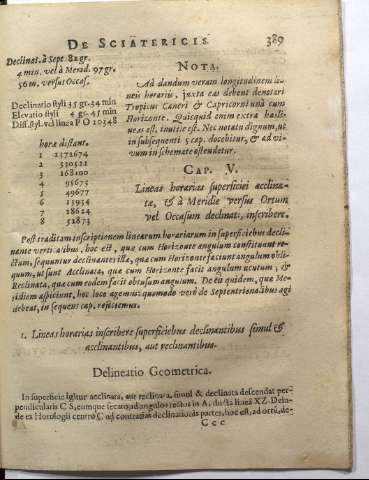 DE SCIATERICIS
389
Declinat. à Sept. 82 gr.
4 min. vel à Merid. 97 gr.
56 m. versus Occas.
Declinatio styli 35 gr. 34 min
Elevatio styli 4 gr. 45 min
Diff. styl. vel linea P O 10348
horæ distant.
1 2372674
2 330521
3 168100
4 95675
5 49677
6 13934
7 18624
8 52873
NOTA.
Ad dandum veram longitudinem li-
neis horariis, juxta eas debent denotari
Tropicus Cancri & Capricorni unà cum
Horizonte. Quicquid enim extra hasli-
neas est, inutile est. Nec notatu dignum, ut
in subsequenti 5 cap. docebitur, & ad vi-
vum in schemate ostendetur.
CAP. V.
Lineas horarias superficiei acclina-
tæ, & à Meridie versus Ortum
vel Occasum declinati, inscribere.
Post traditam inscriptionem linearum horariarum in superficiebus decli-
nantè verticalibus, hoc est, quæ cum Horizonte angulum constituunt re-
ctum, sequuntur declinantes illæ, quæ cum Horizonte faciunt angulum obli-
quum, ut sunt Acclinata, quæ cum Horizonte facit angulum acutum, &
Reclinata, quæ cum eodem facit obtusum angulum. De eis quidem, quæ Me-
ridiem aspiciunt, hoc loco agemus: quomodo verò de Septentrionalibus agi
debeat, in sequens cap. rejicimus.
1. Lineas horarias inscribere superficiebus declinantibus simul &
acclinantibus, aut reclinantibus.
Delineatio Geometrica.
In superficie igitur acclinata, aut reclinata, simul & declinata descendat per-
pendicularis C S, eamque secato ad angulos rectos in A, ducta linea X Z. Dein-
de ex Horologii centro C ad contrarias declinationis partes, hoc est, ad ortũ, de-
Ccc